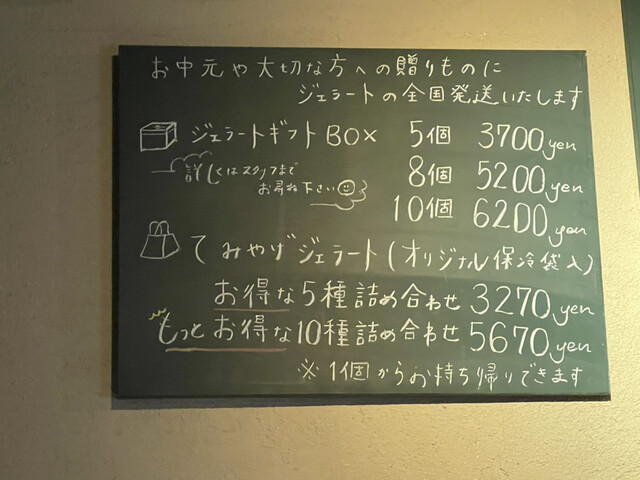 お中元や大切な方への贈りものに
ジェラートの全国発送いたします
ジェラートギフトBOX 5個 3700yen
詳しくはスタッフまで
お尋ね下さい
8個 5200yen
10個 6200yen
てみやげジェラート(オリジナル保冷袋入)
お得な5種詰め合わせ 3270yen
もっとお得な10種詰め合わせ 5670yen
※1個からお持ち帰りできます